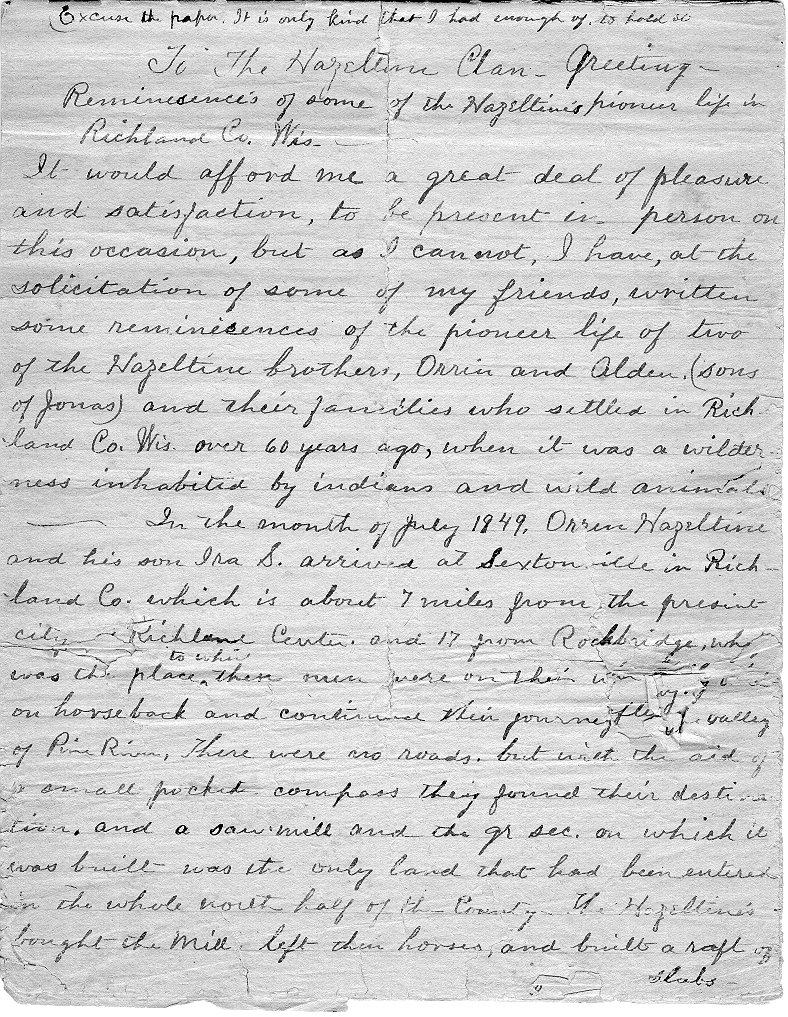 (Excuse the paper. It is only kind that I had enough of. to hold it
To The Hazeltine Clan - Greeting -
Reminesence's of some of the Hazeltine's pioneer life in
Richland Co. Wis -
It would afford me a great deal of pleasure
and satisfaction, to be present in person on
this occasion, but as I cannot, I have, at the
solicitation of some of my friends, written
some reminicences of the pioneer life of two
of the Hazeltine brothers, Orrin and Alden, (sons
of Jonas) and their families who settled in Rich-
land Co. Wis. over 60 years ago, when it was a wilder-
ness inhabited by indians and wild animals.
In the month of July 1849, Orren Hazeltine
and his son Ira S. arrived at Sexton ille in Rich-
land Co. which is about 7 miles from the present
city Richland Center. and 17 from Rockbridge, wh
to whi
was the place these men were on their
on horseback and continued their journey the valley
of Pine River, There were no roads. but with the aid of
a small pocket compass they found their destina
tion. and a saw-mill and the qr sec. on which it
was built was the only land that had been entered
in the whole north half of the County - The Hazeltine's
bought the Mill. left their horses, and built a raft of
slabs -